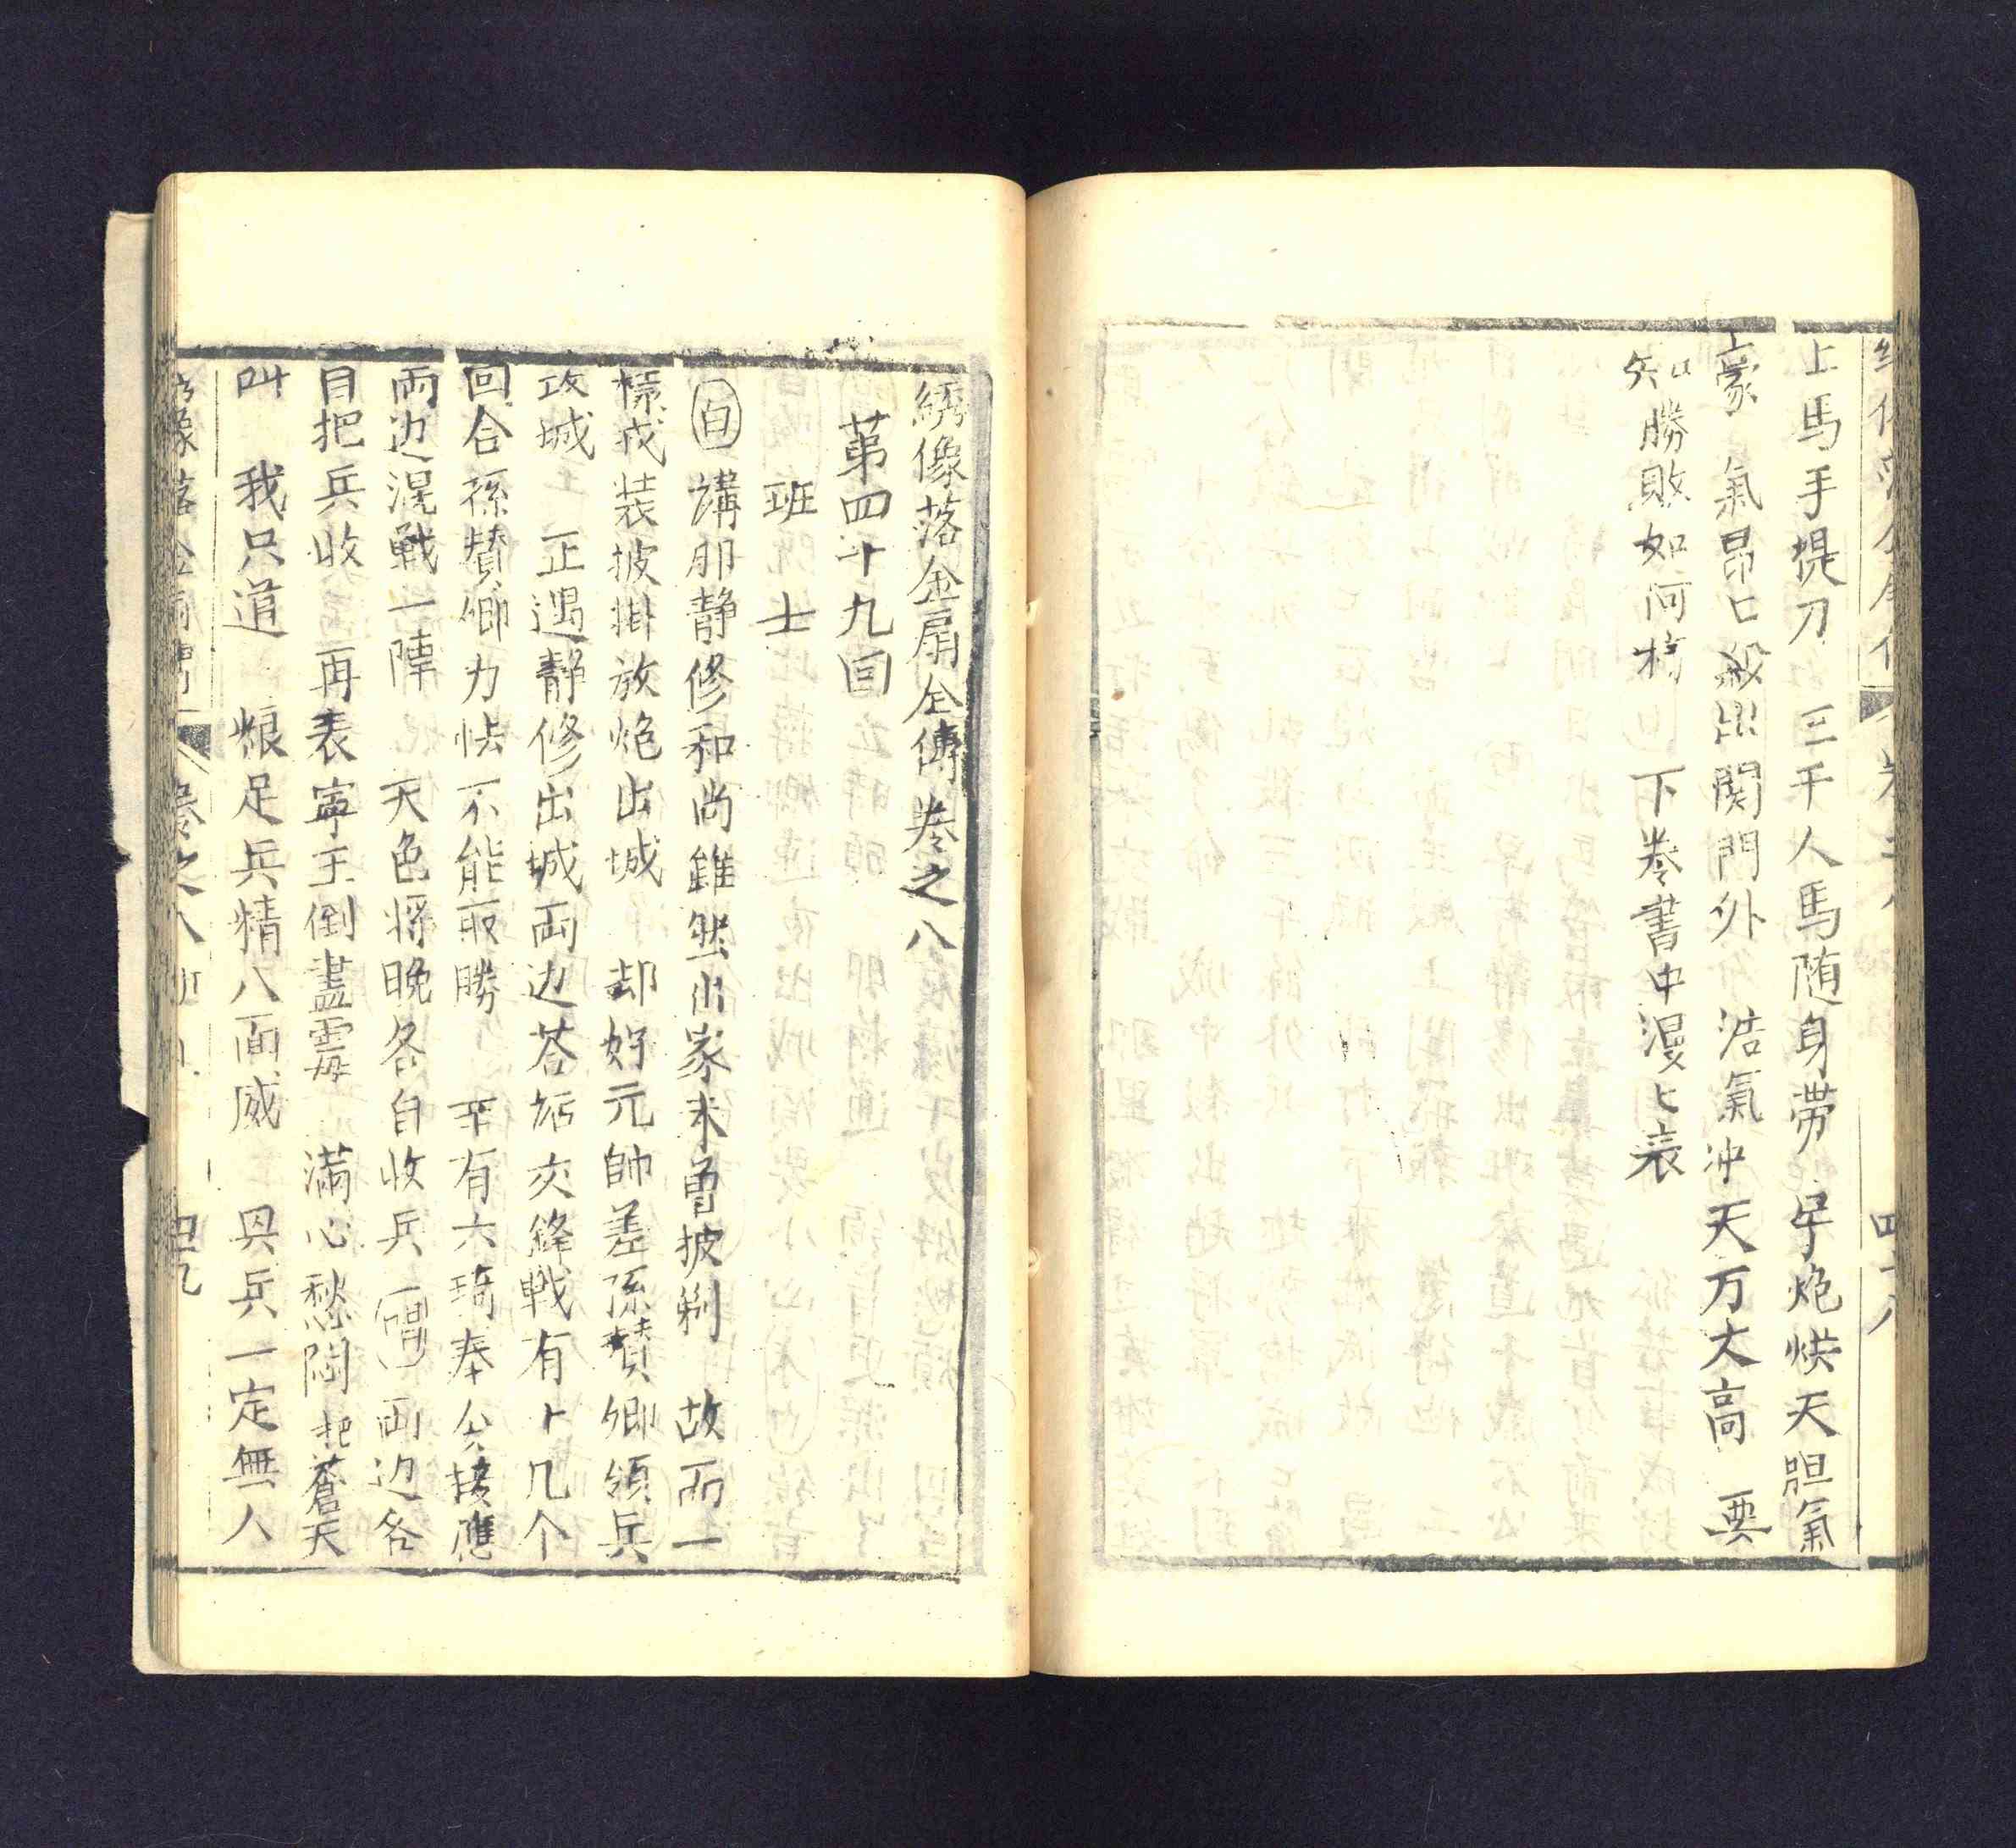 上馬手提刀 三千人馬随身帶 号炮烘天胆氣
豪 氣昂口殺出関門外 浩氣冲天万丈高 要
知勝敗如何樣 下卷書中漫匕表
綉像落金扇全傳卷之八
第四十九回
班士
白 講那静修和尚雖然出家未曾披剃 故而一
樣戎装披掛放炮出城 却好元帥差孫賛卿領兵
攻城 正遇靜修出城両边荅話交鋒戰有十几个
回合孫賛卿力怯不能取勝 幸有六琦奉公接應
両边混戰一陣 天色將晚各自收兵 唱 両边各
自把兵收 再表寧王倒盡霉 滿心愁悶把蒼天
叫 我只道 粮足兵精八面威 兴兵一定無人
綉像落金扇 卷之八 四九